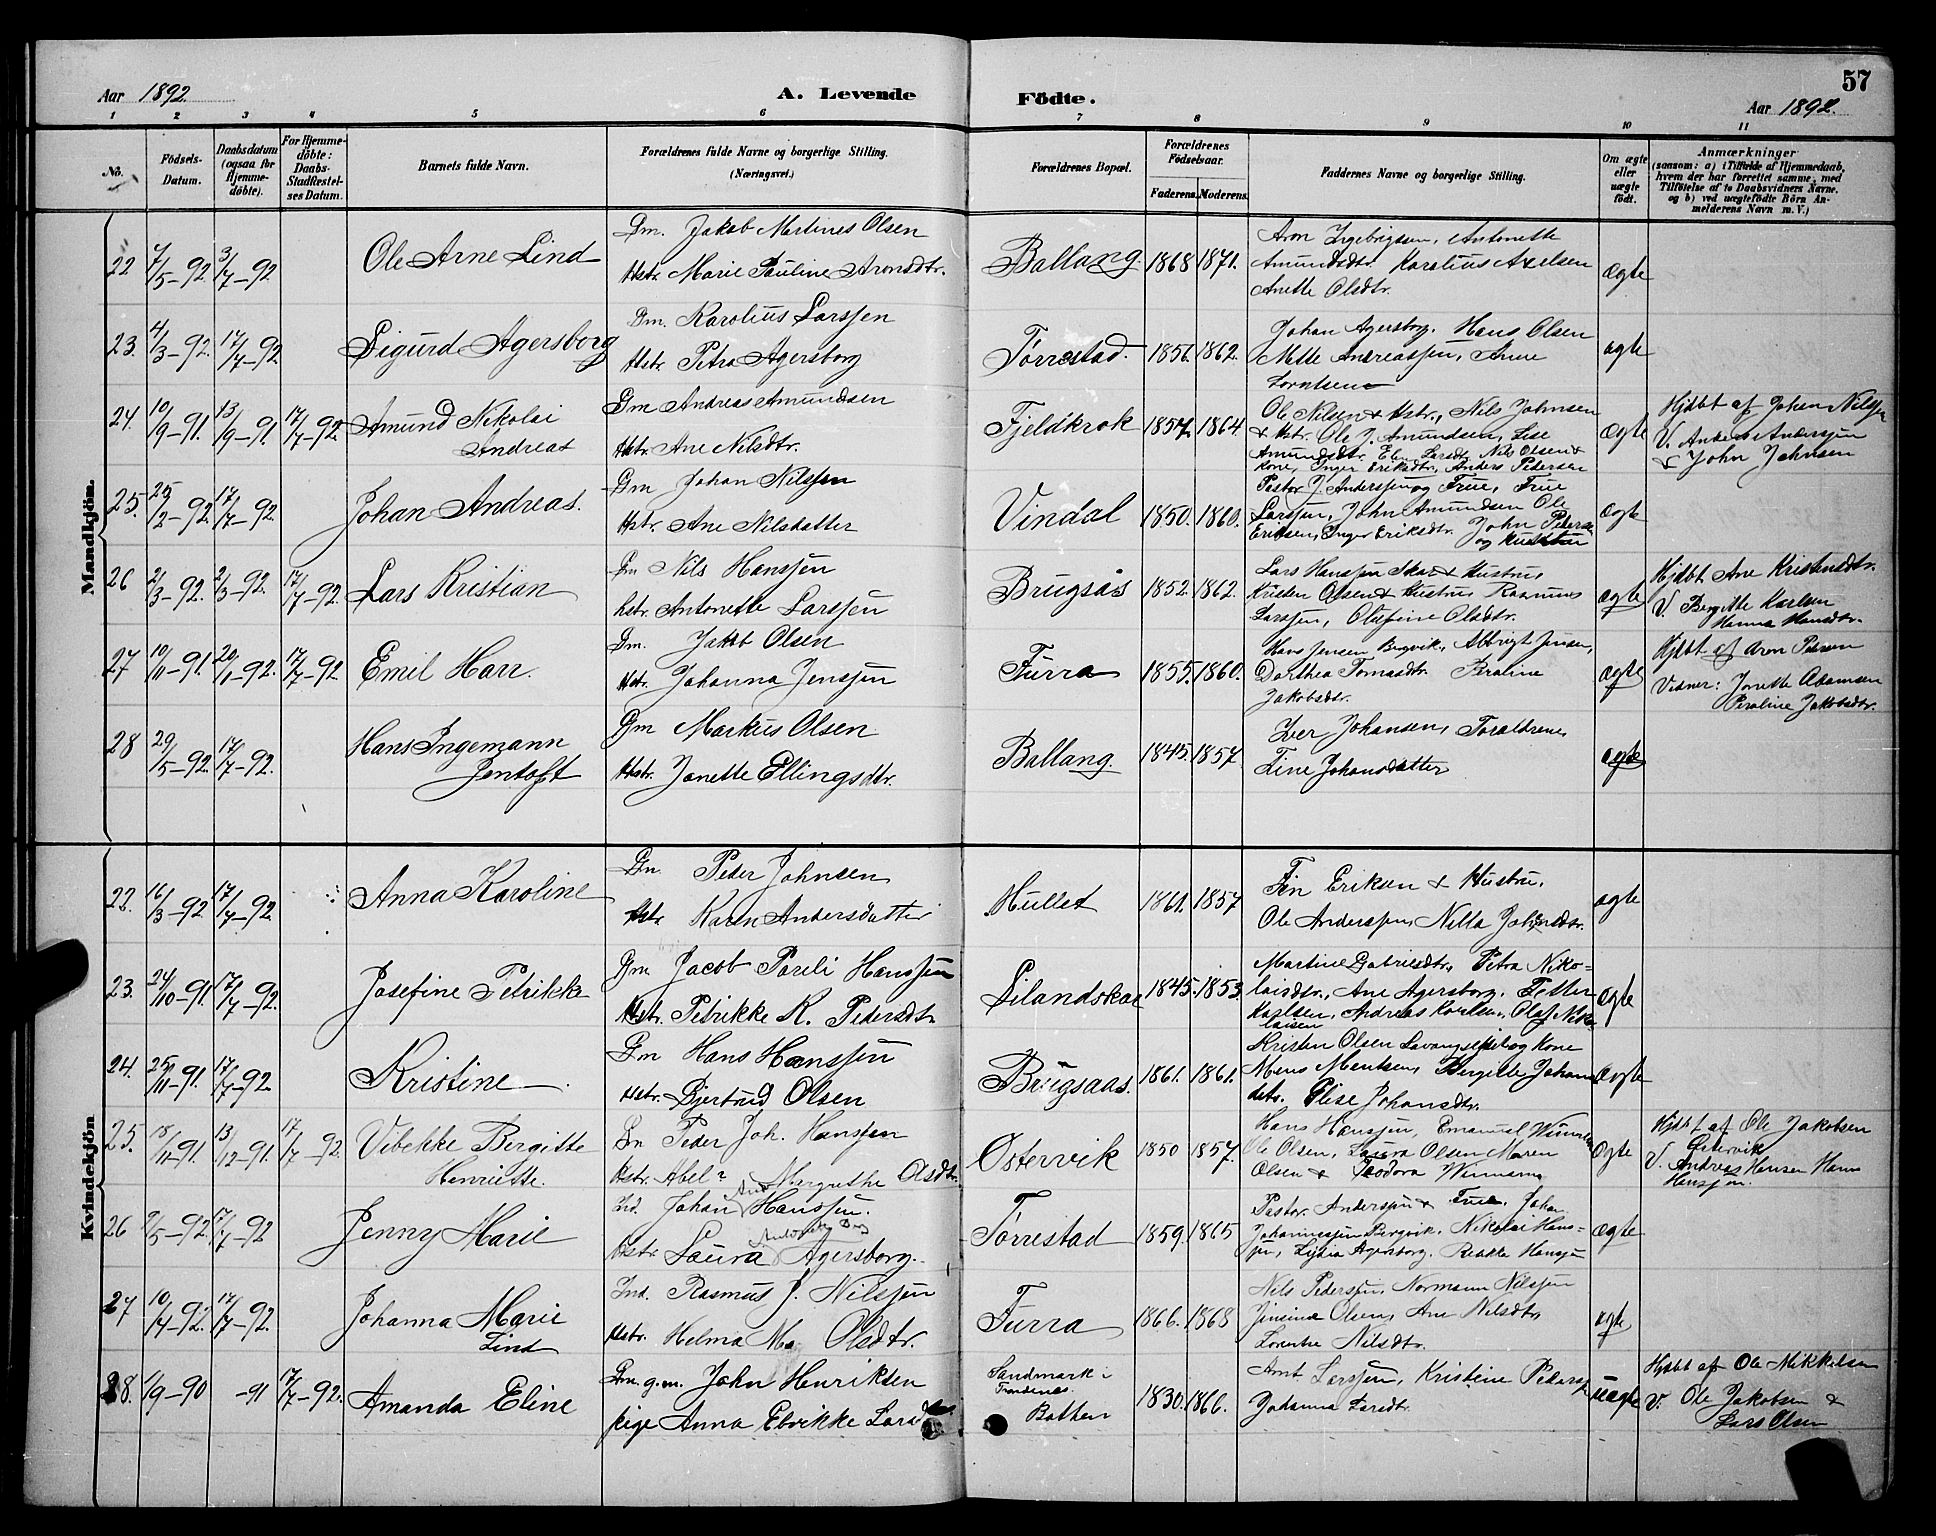 57
Aar 1892.
A. Levende Födte.
Aar 1892.
1 2 3 4 5 6 7 8 9 10 11
No.
Födsels-Datum.
Daabsdatum (ogsaa for Hjemme-döbte).
For Hjemme-döbte: Daabs-Stadfæstel-ses Datum.
Barnets fulde Navn.
Forældrenes fulde Navne og borgerlige Stilling.
(Næringsvei.)
Forældrenes Bopæl.
Forældrenes Födselsaar.
Faderens. Moderens.
Faddernes Navne og borgerlige Stilling.
Om ægte eller uægte födt.
Anmærkninger
(saasom: a) i Tilfælde af Hjemmedaab, hvem der har forrettet samme, med Tilföielse af to Daabsvidners Navne, og b) ved uægtefödte Börn An-melderens Navn m. V.)
Mandkjön.
22 7/5-92 3/7-92 Ole Arne Lind
Gm. Jakob Martines Olsen
Hstr. Marie Pauline Aronsdtr.
Ballang 1868 1871.
Aron Ingebrigsen, Antonette
Amundsdtr. Karolius Axelsen
Anette Olsdtr.
ægte
23. 4/3-92. 17/7-92 Sigurd Agersborg
Gm. Karolius Larssen
Hstr. Petra Agersborg
Torrestad. 1856. 1862.
Johan Agersborg. Hans Olsen
Mette Andreassen, Anne
Lorntsen
ægte
24. 10/9-91. 13/9-91 17/7-92 Amund Nikolai
Andreas
Gm Andreas Amundsen
Hstr. Ane Nilsdtr.
Fjeldkrok 1857. 1864.
Ole Nilsen & Hstr., Nils Johnsen
& Hstr. Ole J. Amundsen, Lise
Amundsdtr. Elen Larsdtr. Nils Olsen &
Kone, Inger Eriksdtr., Anders Pedersen
ægte
Hjdbt af Johan Nilssen
V. Anders Anderssen
& John Johnsen
25. 25/2-92. 17/7-92. Johan Andreas.
Gm Johan Nilssen
Hstr. Ane Nilsdatter
Vindal 1850. 1860.
Pastor J. Anderssen og Frue, Frue
Larssen, John Amundsen Ole
Eriksen, Inger Eriksdtr. John Peders
og Hustru
ægte
26 2/3-92. 2/3-92. 17/7-92. Lars Kristian
Gm Nils Hanssen
Hstr. Antonette Larssen
Brugsås 1852. 1862.
Lars Hanssen Skar & Hustru,
Kristen Olsen & Hustru Rasmus
Larssen, Olufine Olsdtr.
ægte
Hjdbt Ane Kristensdtr.
V. Bergitte Karlsen
Hanna Hansdtr.
27 10/11-91. 20/1-92. 17/7-92 Emil Harr.
Gm. Jakob Olsen
Hstr. Johanna Jenssen
Furra 1855. 1860.
Hans Jensen Bergvik, Albrigt Jensen,
Dorthea Tomasdtr. Peraline
Jakobsdtr.
ægte
Hjdbt af Aron Petersen
Vidner: Jonette Abramsen
Peraline Jakobsdtr.
28 29/5-92. 17/7-92. Hans Ingemann
Jentoft
Gm Markus Olsen
Hstr. Jonette Ellingsdtr.
Ballang. 1845. 1857
Iver Johansen, Forældrene,
Line Johansdatter
ægte
Kvindekjön
22. 16/3-92 17/7-92 Anna Karoline
Gm. Peder Johnsen
Hstr. Karen Andersdatter
Hullet 1861. 1857
Fin Eriksen & Hustru,
Ole Anderssen, Nilla Johnsdtr.
ægte
23. 24/10-91. 17/7-92. Josefine Petrikke
Gm Jacob Pareli Hanssen
Hstr. Petrikke K. Pedersdtr
Lilandskar 1845. 1853.
Martine Gabrielsdtr, Petra Niko-
laisdtr., Ane Agersborg. Petter
Karlsen, Andreas Karlsen, Olaf Niko
laisen
ægte
24. 25/11-91. 17/7-92 Kristine
Gm Hans Hanssen
Hstr. Gjertrud Olsen
Brugsaas. 1861. 1861.
Kristen Olsen Lavangseidet og Kone
Mons Montsen, Bergitte Johans
dtr. Elise Johansdtr.
ægte
25. 18/11-91. 13/12-91. 17/7-92. Vibekke Bergitte
Henriette.
Gm Peder Joh. Hanssen
Hstr. Abel Mergrethe Olsdtr.
Østervik 1850 1857.
Hans Hanssen, Emanuel
Ole Olsen, Laura Olsen Maren
Olsen & Teodora
ægte
Hjdbt af Ole Jakobsen
Østervik
V. Andreas Hansen Hans
Hanssen.
26 2/5-92. 17/7-92 Jenny Marie
Ind. Johan And Hanssen.
Hstr Laura Agersborg.
Torrestad 1859. 1865
Pastor Anderssen & Frue. Johan
Johannessen Bergvik. Nikolai Hans-
sen, Lydia Agersborg.
ægte
27 10/4-92. 17/7-92. Johanna Marie
Lind
Ind. Rasmus J. Nilssen
Hstr. Helma Ma. Olsdtr.
Furra 1866. 1868
Nils Pederssen, Normann Nilssen
Jensine Olsen, Ane Nilsdtr,
Lorentse Nilsdtr.
ægte
28. 1/9-90 -91 17/7-92. Amanda Eline
Gm. g.m. John Henriksen
pige Anna Elvikke Larsdtr
Sandmark i
Trondenes.
Botten
1830. 1866.
Arnt Larssen, Kristine Peders
Johanna Larsdtr.
uægte
Hjdbt af Ole Mikkelsen
V. Ole Jakobsen &
Lars Olsen